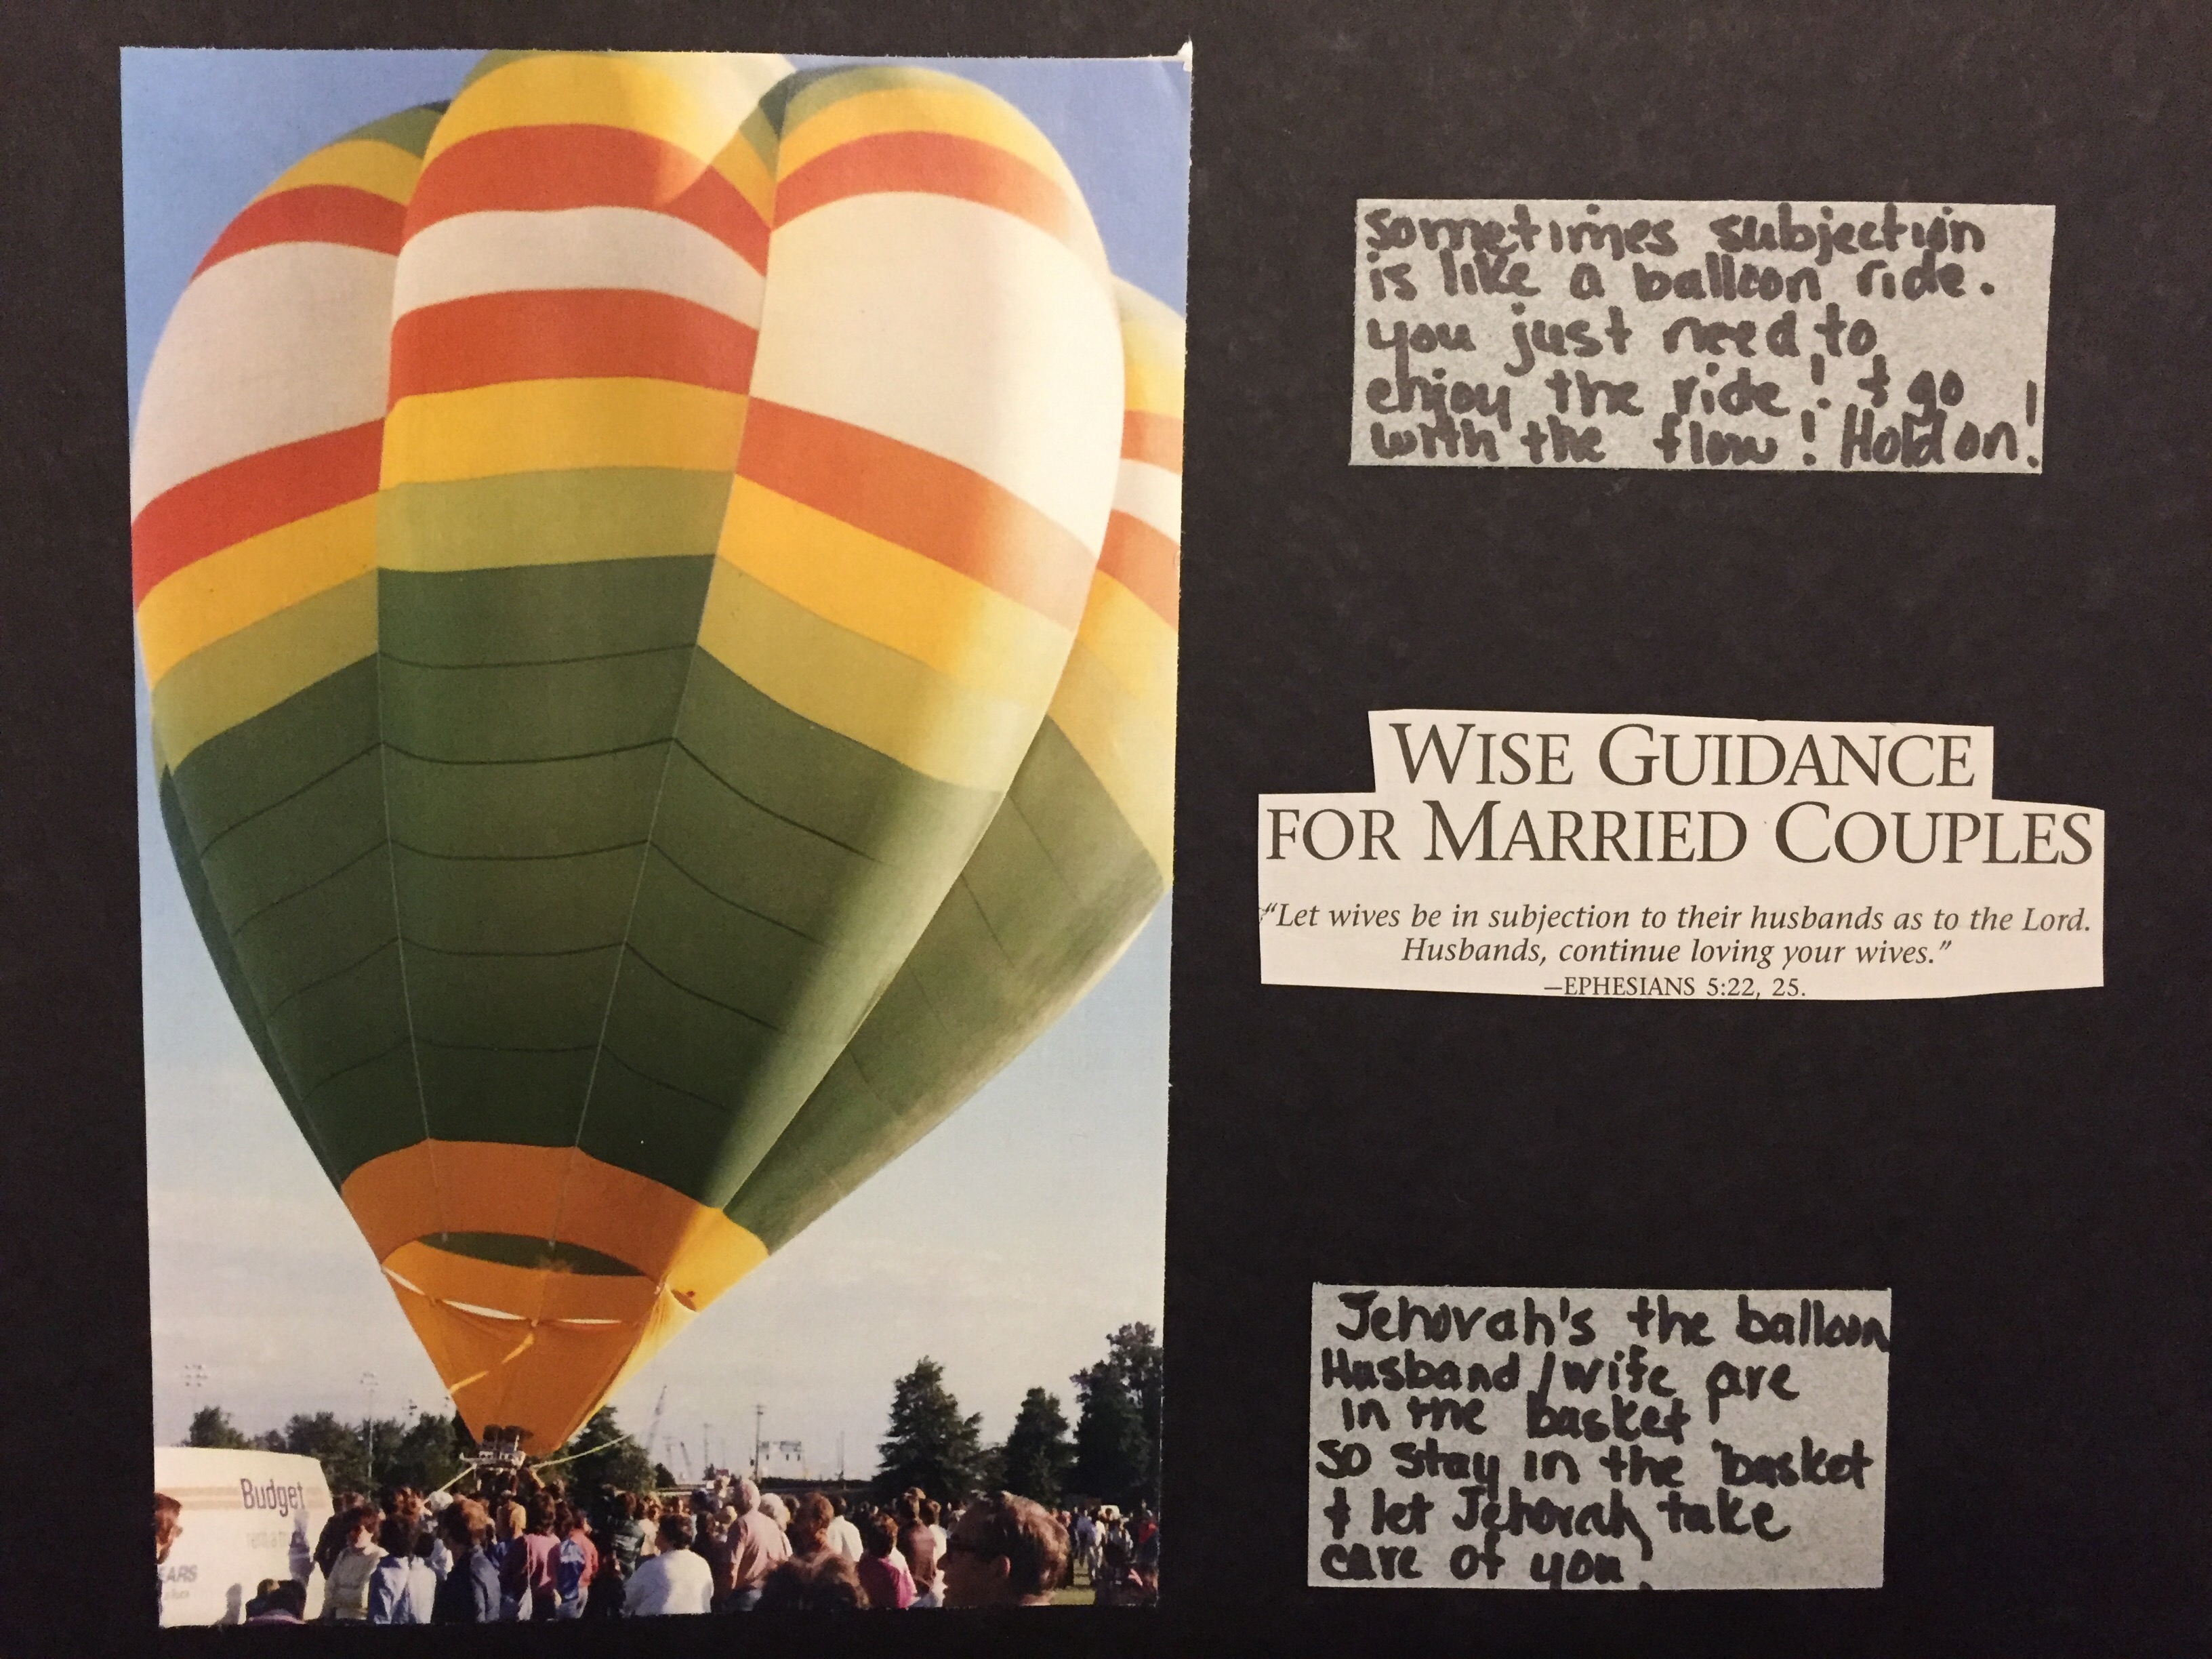 sometimes subjection
is like a balloon ride.
you just need to
enjoy the ride! & go
with the flow! Hold on!
WISE GUIDANCE
FOR MARRIED COUPLES
“Let wives be in subjection to their husbands as to the Lord.
Husbands, continue loving your wives.”
—EPHESIANS 5:22, 25.
Jehovah's the balloon
Husband/wife are
in the basket
so stay in the basket
& let Jehovah take
care of you!
Budget
EARS